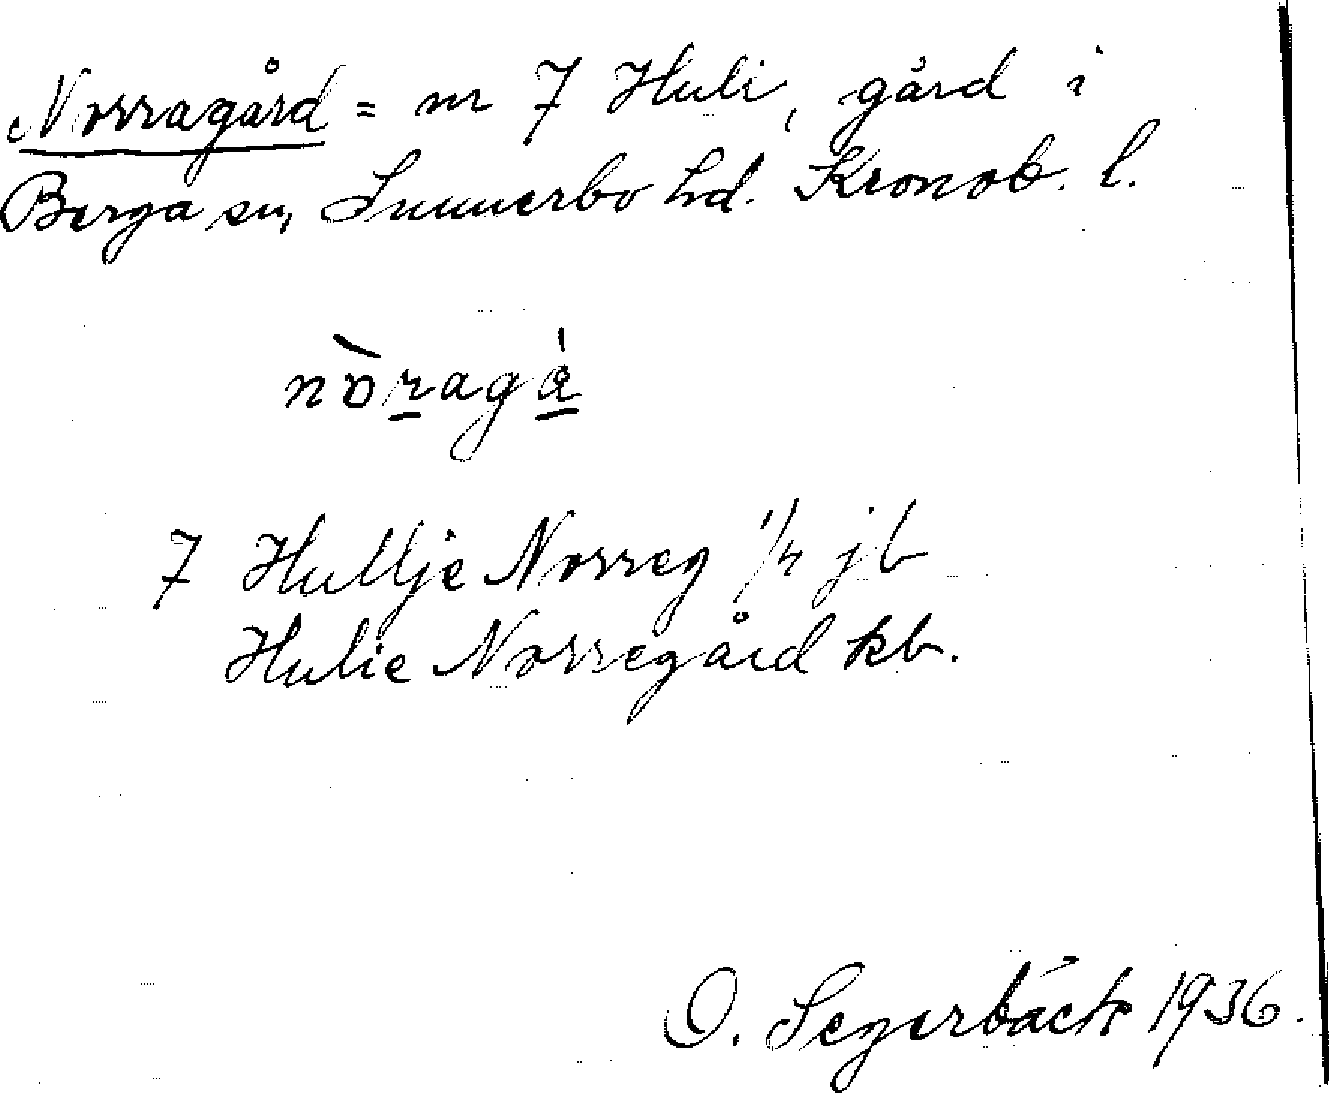 Norragård = nr 7 Huli, gård i
Berga sn, Sunnerbo hd. Kronob. l.
nòragå̍
7 Hullje Norreg 1/4 jb
Hulie Norregård kb.
O. Segerbäck 1936.